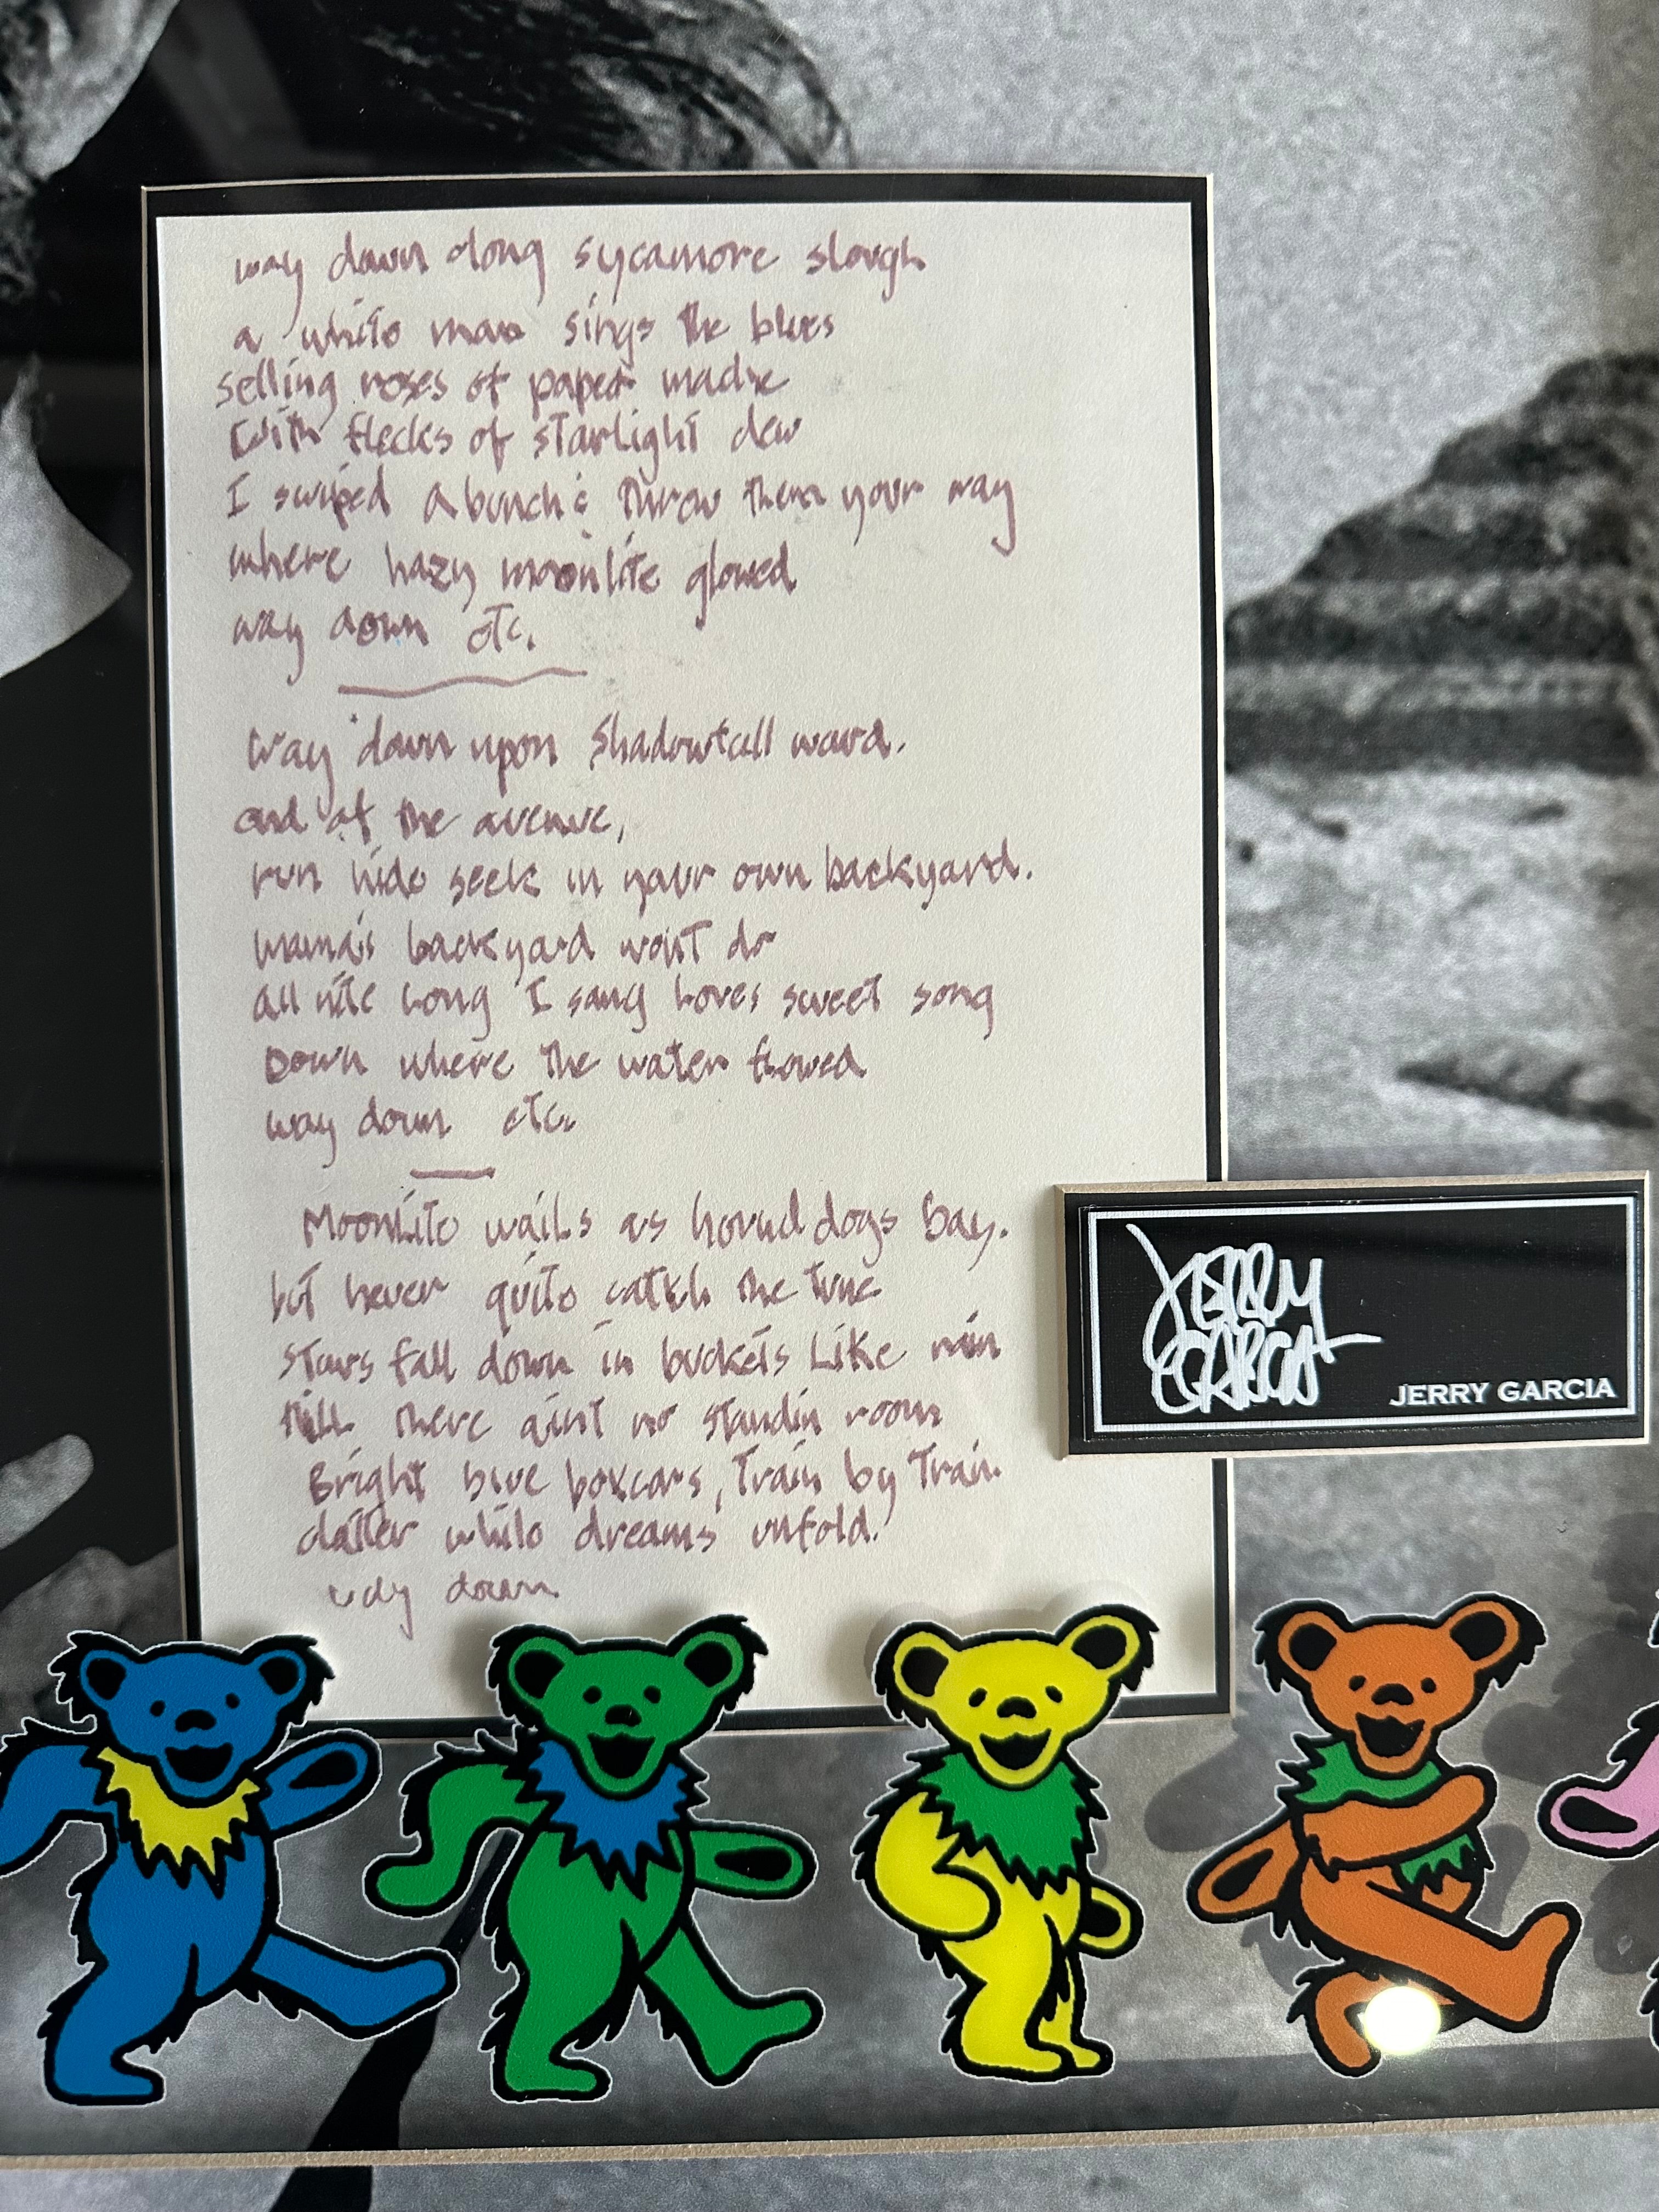 way down along sycamore slough
a white man sings the blues
selling roses of paper mache
With flecks of starlight dew
I swiped a bunch & threw them your way
where hazy moonlite glowed
way down etc.
Way down upon Shadowfall ward.
end of the avenue,
run hide seek in your own backyard.
mama's backyard won't do
All nite Long I sang Loves sweet song
Down where the water flowed
way down etc.
Moonlite wails as hound dogs bay.
but never quite catch the tune
Stars fall down in buckets Like rain
till there ain't no standin room
Bright blue boxcars, Train by Train
clatter while dreams unfold.
way down
JERRY GARCIA
JERRY GARCIA